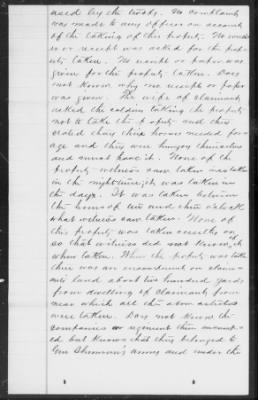 used by the troops. No complaint
was made to any officer on account
of the taking of this property. No vouch-
er or receipt was asked for the prop-
erty taken. No receipt or paper was
given for the property taken. Does
not know why no receipt or paper
was given. The wife of claimant
asked the soldiers taking the property
not to take the property and they
stated their horses needed for-
age and they were hungry themselves
and must have it. None of the
property witness saw taken was taken
in the nighttime, it was taken in
the day. It was taken between
the hours of ten and three o'clock
what witness saw taken. None of
this property was taken secretly or
so that witness did not know it
when taken. When the property was taken
there was an encampment on claim-
ants land about two hundred yards
from dwelling of claimant from
near which all the above articles
were taken. Does not know the
companies or regiment then encamp-
ed but knows that they belonged to
Gen Sherman's army and under the